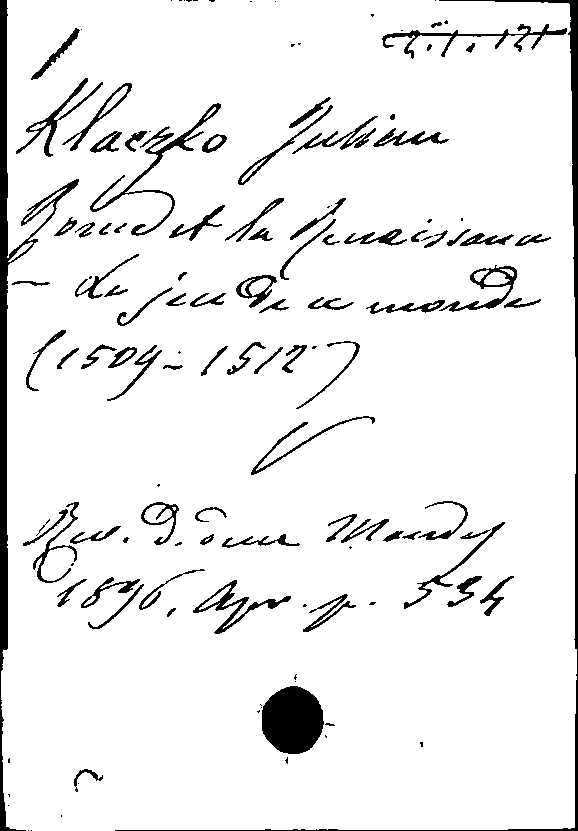 Klaczko Julian
Rome et la Renaissance
- Le jeu de ce monde
(1509-1512)
V
Rev. d. deux Mondes
1896. Apr. p. 534